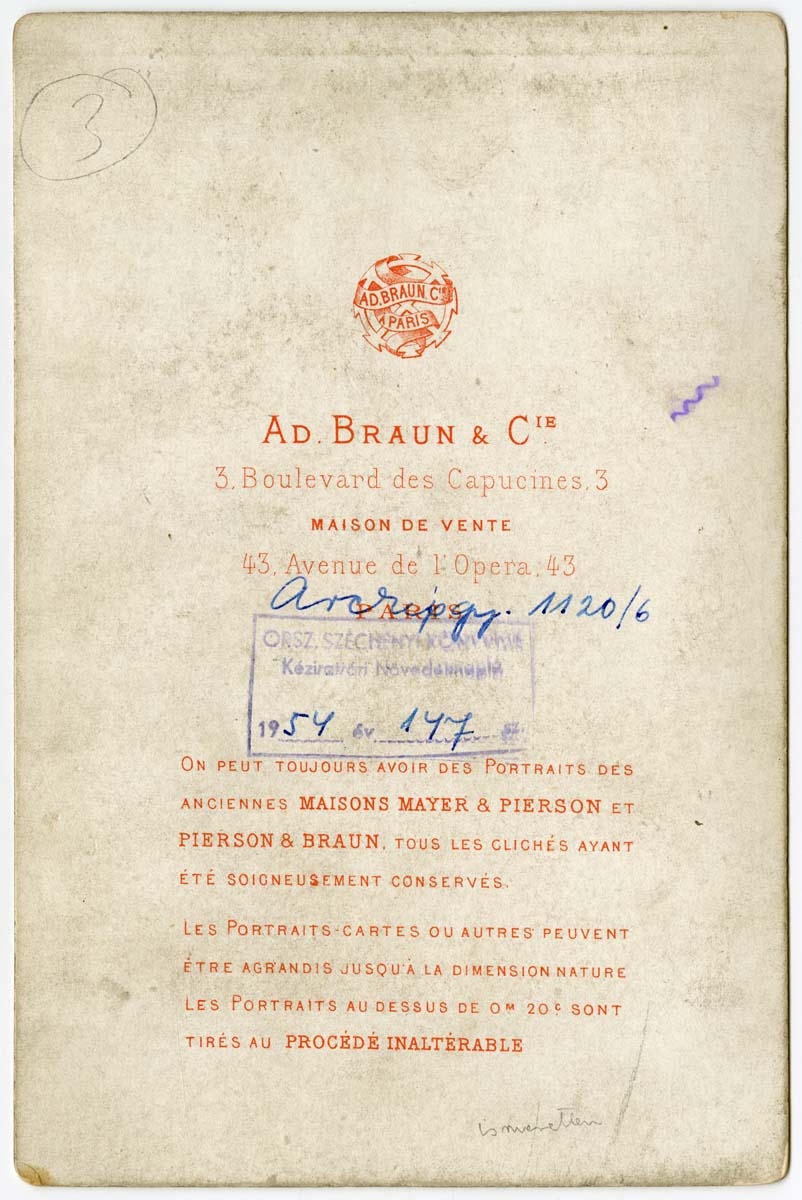 3
AD. BRAUN. Cie
PARIS
AD. BRAUN & CIE.
3, Boulevard des Capucines, 3
MAISON DE VENTE
43, Avenue de l'Opera, 43
PARIS
Arcképgy. 1120/6
ORSZ. SZÉCHÉNYI KÖNYVTÁR
Kézirattári Növedéknapló
1954 év 147 sz.
ON PEUT TOUJOURS AVOIR DES PORTRAITS DES
ANCIENNES MAISONS MAYER & PIERSON ET
PIERSON & BRAUN, TOUS LES CLICHÉS AYANT
ÉTÉ SOIGNEUSEMENT CONSERVÉS.
LES PORTRAITS-CARTES OU AUTRES PEUVENT
ÊTRE AGRANDIS JUSQU'À LA DIMENSION NATURE
LES PORTRAITS AU DESSUS DE 0M 20C SONT
TIRÉS AU PROCÉDÉ INALTÉRABLE
ismeretlen